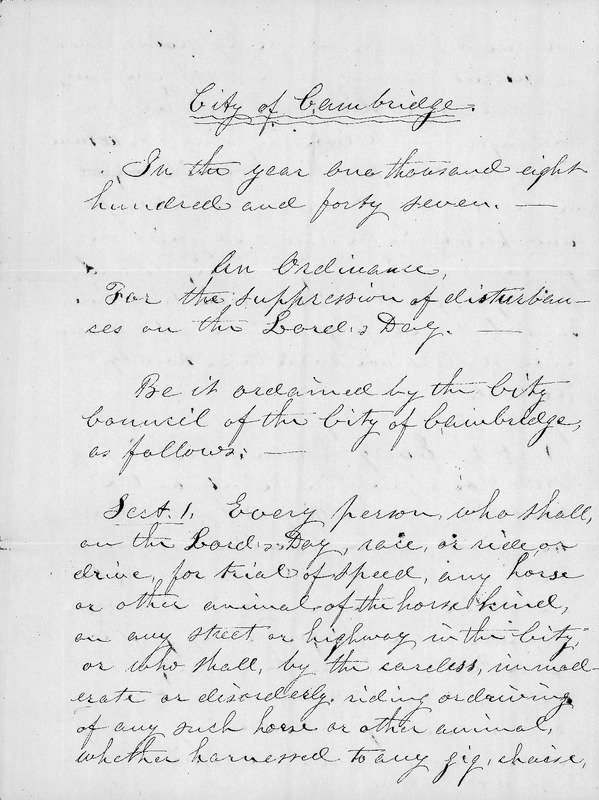 City of Cambridge.
In the year one thousand eight
hundred and forty seven. —
An Ordinance,
For the suppression of disturban-
ses on the Lord's Day. —
Be it ordained by the City
Council of the City of Cambridge,
as follows: —
Sect. 1. Every person, who shall,
on the Lord's Day, race, or ride or
drive, for trial of speed, any horse
or other animal of the horse kind,
on any street or highway in the City;
or who shall, by the careless, immod-
erate or disorderly riding or driving
of any such horse or other animal,
whether harnessed to any gig, chaise,